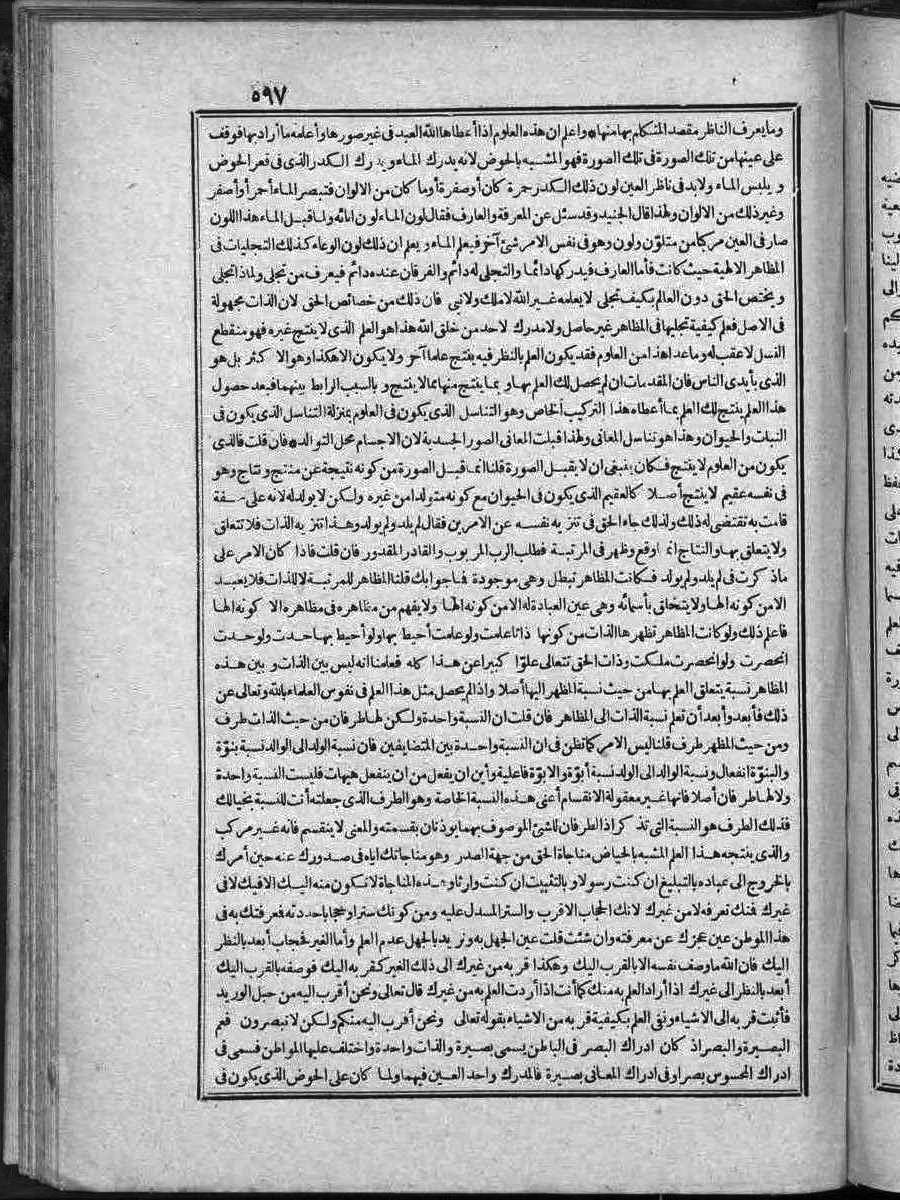 ٥٩٧
وما يعرف الناظر مقصد المتكلم بها منها واعلم ان هذه العلوم اذا أعطاها الله العبد فى غير صورها وأعلمه ما أراد بها فوقف
على عينها من تلك الصورة فى تلك الصورة فهو المشبه بالحوض لانه يدرك الماء ويدرك الكدر الذى فى قعر الحوض
ويلبس الماء ولا بد فى ناظر العين لون ذلك الكدر حمرة كان أو صفرة أو ما كان من الالوان فتبصر الماء أحمر أو أصفر
وغير ذلك من الالوان ولهذا قال الجنيد وقد سئل عن المعرفة والعارف فقال لون الماء لون انائه ولما قبل الماء هذا اللون
صار فى العين مركبا من متلوّن ولون وهو فى نفس الامر شئ آخر فيعلم الماء ويعلم ان ذلك لون الوعاء كذلك التجليات فى
المظاهر الالهية حيث كانت فأما العارف فيدركها دائما والتجلى له دائم والفرقان عنده دائم فيعرف من تجلى ولماذا تجلى
ويختص الحق دون العالم بكيف تجلى لا يعلمه غير الله لا ملك ولا نبى فان ذلك من خصائص الحق لان الذات مجهولة
فى الاصل فعلم كيفية تجليها فى المظاهر غير حاصل ولا مدرك لاحد من خلق الله هذا هو العلم الذى لا ينتج غيره فهو منقطع
النسل لا عقب له وما عدا هذا من العلوم فقد يكون العلم بالنظر فيه ينتج علما آخر ولا يكون الا هكذا وهو الا كثر بل هو
الذى بأيدى الناس فان المقدمات ان لم يحصل لك العلم بها وبما ينتج منها مما لا ينتج وبالسبب الرابط بينهما فبعد حصول
هذا العلم ينتج لك العلم بما أعطاه هذا التركيب الخاص وهو التناسل الذى يكون فى العلوم بمنزلة التناسل الذى يكون فى
النبات والحيوان وهذا هو تناسل المعانى ولهذا قبلت المعانى الصور الجسدية لان الاجسام محل التوالد فان قلت فالذى
يكون من العلوم لا ينتج فكان ينبغى ان لا يقبل الصورة قلنا انما قبل الصورة من كونه نتيجة عن منتج ونتاج وهو
فى نفسه عقيم لا ينتج أصلا كالعقيم الذى يكون فى الحيوان مع كونه متولدا من غيره ولكن لا يولد له لانه على صفة
قامت به تقتضى له ذلك ولذلك جاء الحق فى تنزيه نفسه عن الامرين فقال لم يلد ولم يولد وهذا تنزيه الذات فلا تتعلق
ولا يتعلق بها والنتاج انما وقع وظهر فى المرتبة فطلب الرب المربوب والقادر المقدور فان قلت فاذا كان الامر على
ما ذكرت فى لم يلد ولم يولد فكانت المظاهر تبطل وهى موجودة فما جوابك قلنا المظاهر للمرتبة لا للذات فلا يعبد
الا من كونه الها ولا يتخلق بأسمائه وهى عين العبادة له الا من كونه الها ولا يفهم من مظاهره فى مظاهره الا كونه الها
فاعلم ذلك ولو كانت المظاهر تظهرها الذات من كونها ذاتا علمت ولو علمت أحيط بها ولو أحيط بها حدت ولو حدت
انحصرت ولو انحصرت ملكت وذات الحق تتعالى علوّا كبيرا عن هذا كله فعلمنا انه ليس بين الذات وبين هذه
المظاهر نسبة يتعلق العلم بها من حيث نسبة المظهر اليها أصلا واذا لم يحصل مثل هذا العلم فى نفوس العلماء بالله وتعالى عن
ذلك فأبعد وأبعد أن تعلم نسبة الذات الى المظاهر فان قلت ان النسبة واحدة ولكن لها طرفان من حيث الذات طرف
ومن حيث المظهر طرف قلنا ليس الامر كما تظن فى ان النسبة واحدة بين المتضايفين فان نسبة الولد الى الوالد نسبة بنوّة
والبنوّة انفعال ونسبة الوالد الى الولد نسبة أبوّة والابوّة فاعلية وأين ان يفعل من ان ينفعل هيهات فليست النسبة واحدة
ولا لها طرفان أصلا فانها غير معقولة الانقسام أعنى هذه النسبة الخاصة وهو الطرف الذى جعلته أنت للنسبة بخيالك
فذلك الطرف هو النسبة التى تذكر اذ الطرفان للشئ الموصوف بهما يؤذنان بقسمته والمعنى لا ينقسم فانه غير مركب
والذى ينتجه هذا العلم المشبه بالحياض مناجاة الحق من جهة الصدر وهو مناجاتك اياه فى صدورك عنه حين أمرك
بالخروج الى عباده بالتبليغ ان كنت رسولا وبالتثبيت ان كنت وارثا وهذه المناجاة لا تكون منه اليك الا فيك لا فى
غيرك فمنك تعرفه لا من غيرك لانك الحجاب الاقرب والستر المسدل عليه ومن كونك سترا وحجابا حددته فمعرفتك به فى
هذا الموطن عين عجزك عن معرفته وان شئت قلت عين الجهل به ونريد بالجهل عدم العلم وأما الغير فحجاب أبعد بالنظر
اليك فان الله ما وصف نفسه الا بالقرب اليك وهكذا قربه من غيرك الى ذلك الغير كقربه اليك فوصفه بالقرب اليك
أبعد بالنظر الى غيرك اذا أراد العلم به منك كما أنت اذا أردت العلم به من غيرك قال تعالى ونحن أقرب اليه من حبل الوريد
فأثبت قربه الى الاشياء ونفى العلم بكيفية قربه من الاشياء بقوله تعالى ونحن أقرب اليه منكم ولكن لا تبصرون فعم
البصيرة والبصر اذ كان ادراك البصر فى الباطن يسمى بصيرة والذات واحدة واختلف عليها المواطن فسمى فى
ادراك المحسوس بصرا وفى ادراك المعانى بصيرة فالمدرك واحد العين فيهما ولما كان على الحوض الذى يكون فى